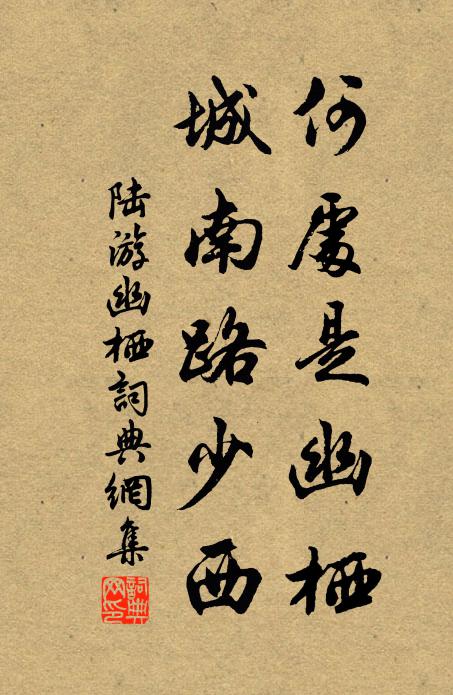 何處是幽栖
城南路少西
陆游幽栖詞典網集
詞典網印